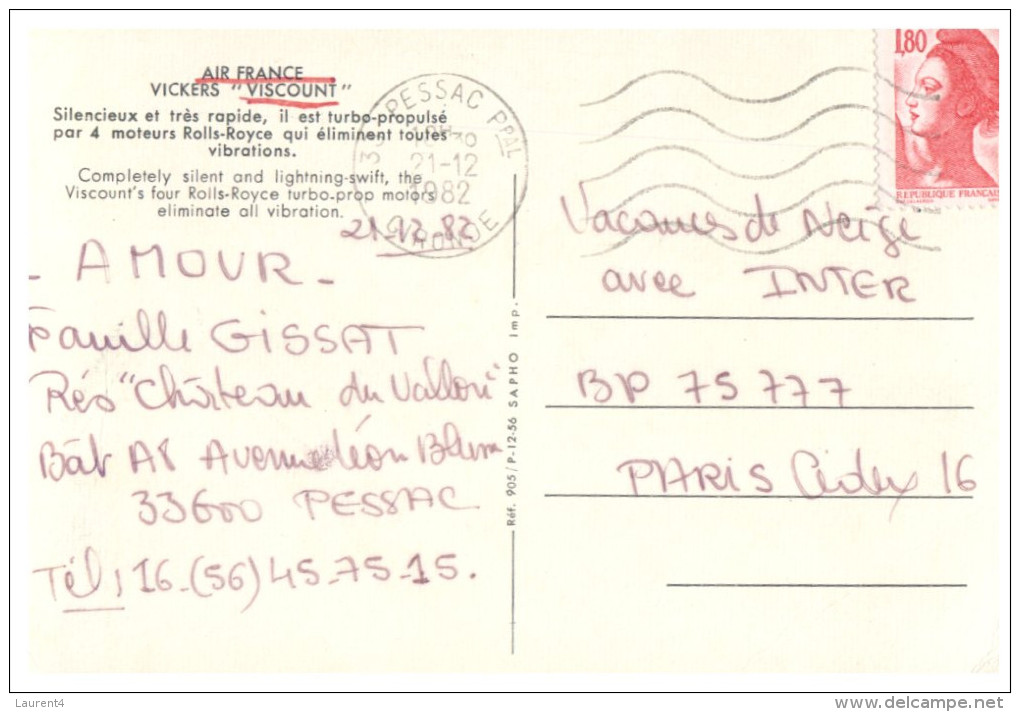 AIR FRANCE
VICKERS "VISCOUNT"
Silencieux et très rapide, il est turbo-propulsé
par 4 moteurs Rolls-Royce qui éliminent toutes
vibrations.
Completely silent and lightning-swift, the
Viscount's four Rolls-Royce turbo-prop motors
eliminate all vibration.
21.12.82
- AMOUR -
Famille GISSAT
Rés "Château du Vallon"
Bât A8 Avenue Léon Blum
33600 PESSAC
Tél: 16-(56)45-75-15.
Réf. 905/P-12-56 SAPHO Imp.
33 PESSAC PPAL
21-12
1982
GIRONDE
1,80
REPUBLIQUE FRANCAISE
Vacances de Neige
avec INTER
BP 75 777
PARIS Cedex 16
Laurent4
www.delcampe.net